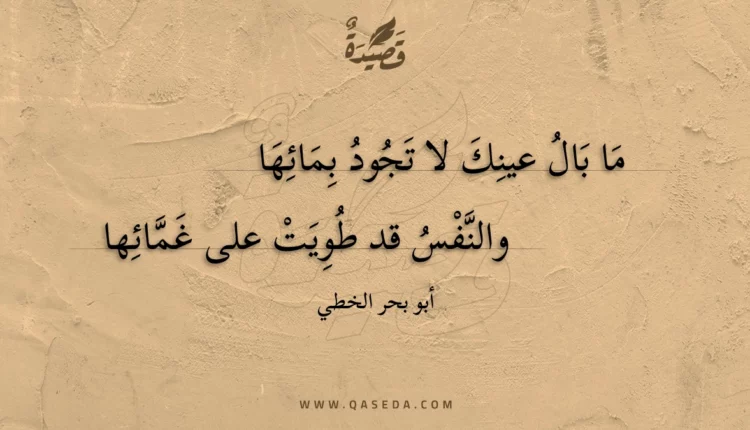 قَصِيدَةٌ
مَا بَالُ عينِكَ لا تَجُودُ بِمَائِهَا
والنَّفْسُ قد طُوِيَتْ على غَمَّائِها
أبو بحر الخطي
WWW.QASEDA.COM